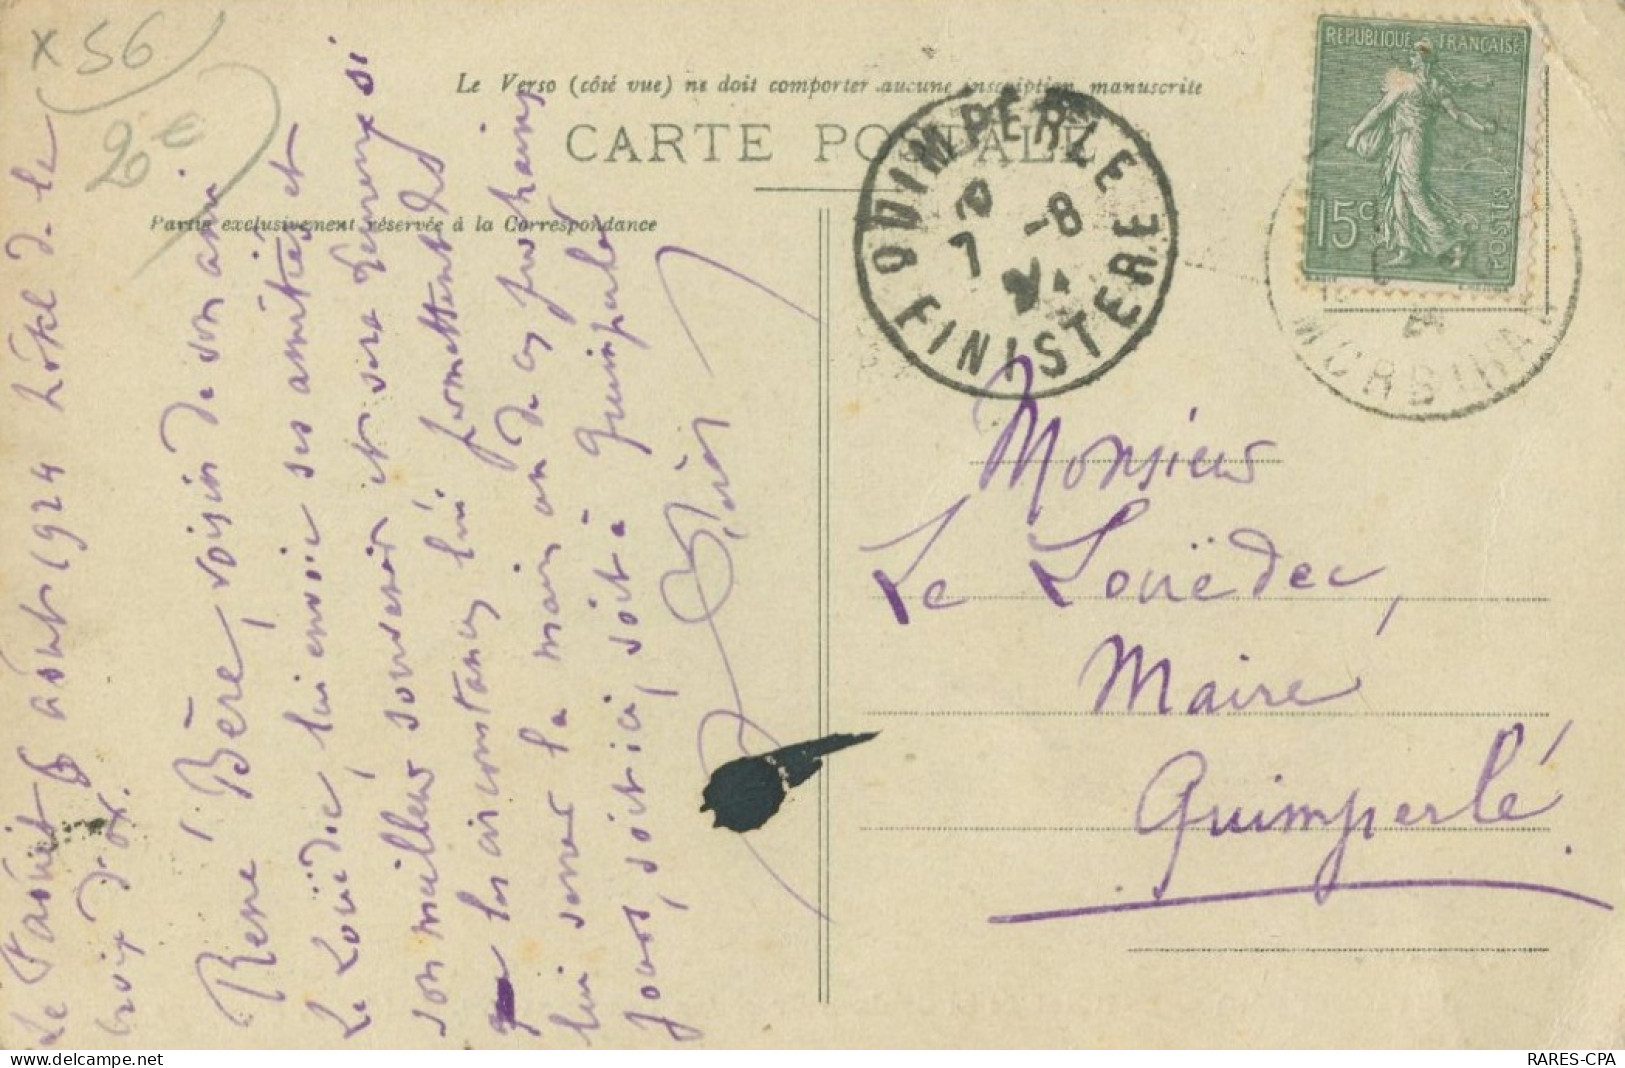 x 56
20€
Le Verso (côté vue) ne doit comporter aucune inscription manuscrite
CARTE POSTALE
Partie exclusivement réservée à la Correspondance
REPUBLIQUE FRANÇAISE
15c
POSTES
QUIMPERLE
7 -8
FINISTERE
MORBIHAN
Le Faouët 6 août 1924 hôtel de la
croix d'or.
René Bère, voisin de son ami
Le Louëdec, lui envoie ses amitiés et
son meilleur souvenir et sera heureux si
les circonstances lui permettent de
lui serrer la main un de ces prochains
jours, soit ici, soit à Quimperlé
Bère
Monsieur
Le Louëdec,
Maire
Quimperlé.
RARES-CPA